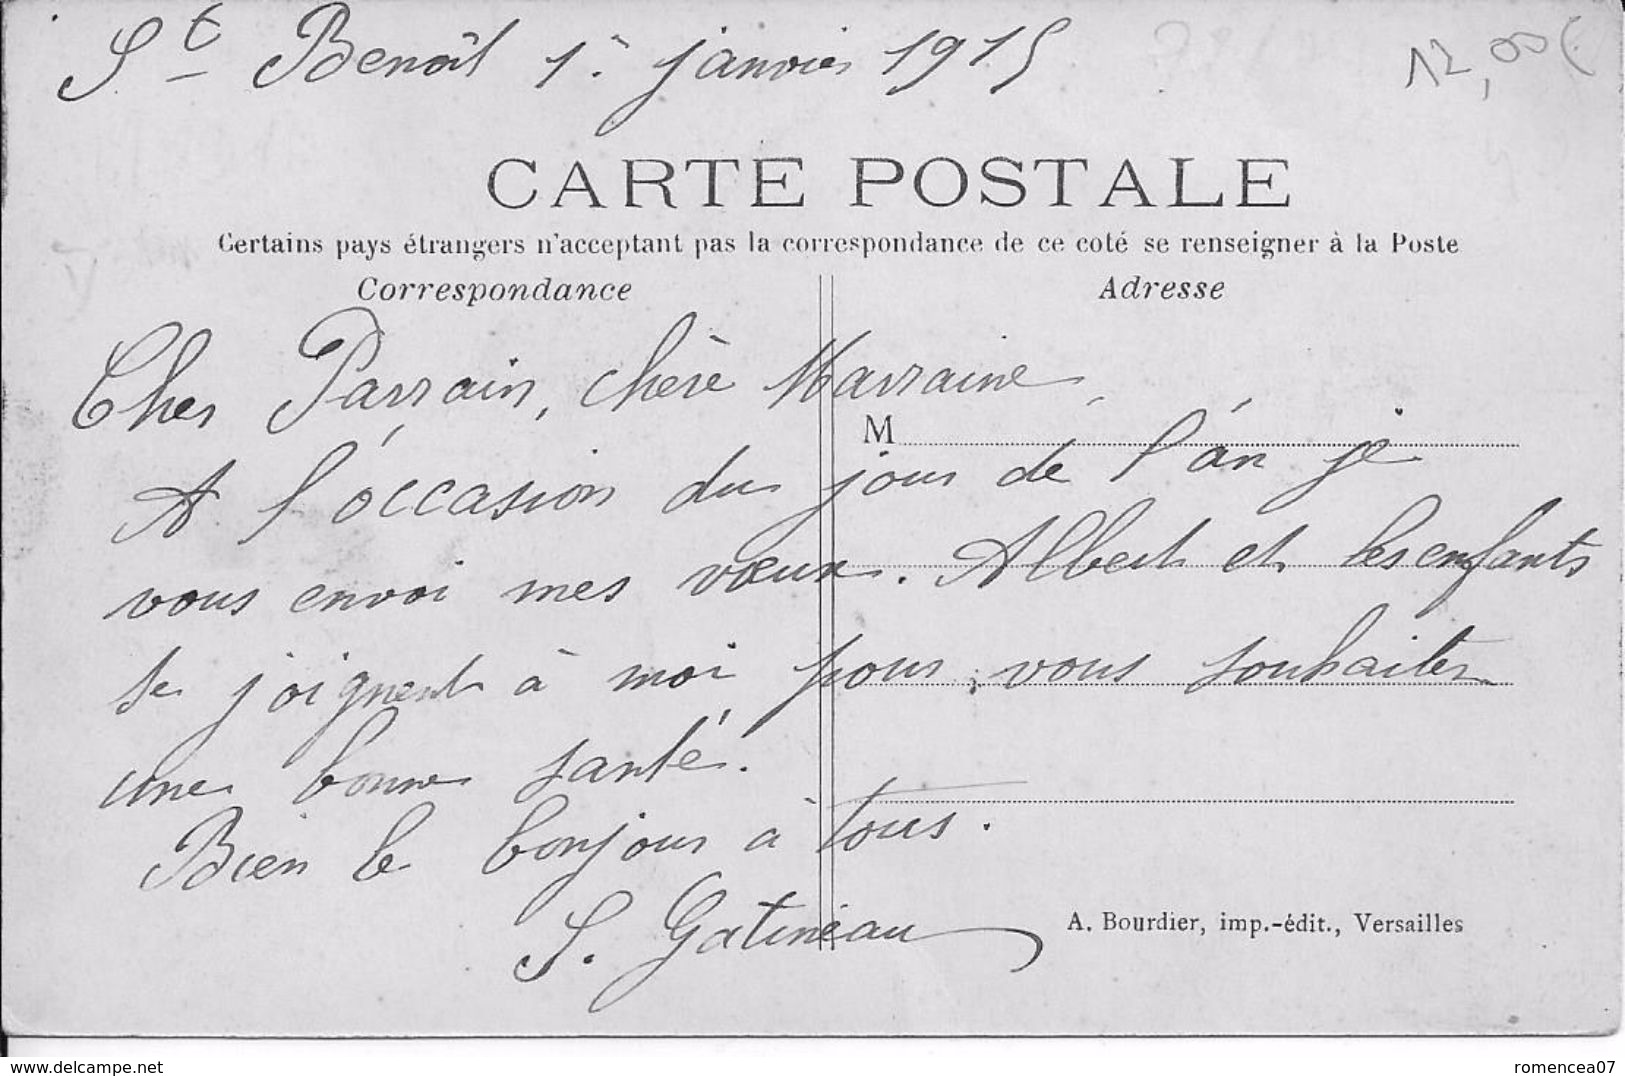 St Benoît 1er janvier 1915
12,00 €
CARTE POSTALE
Certains pays étrangers n'acceptant pas la correspondance de ce coté se renseigner à la Poste
Correspondance
Adresse
Cher Parrain, chère Marraine,
M
A l'occasion du jour de l'an je
vous envoi mes vœux. Albert et les enfants
se joignent à moi pour vous souhaiter
une bonne santé.
Bien le bonjour à tous.
S. Gatineau
A. Bourdier, imp.-édit., Versailles
www.delcampe.net
romencea07